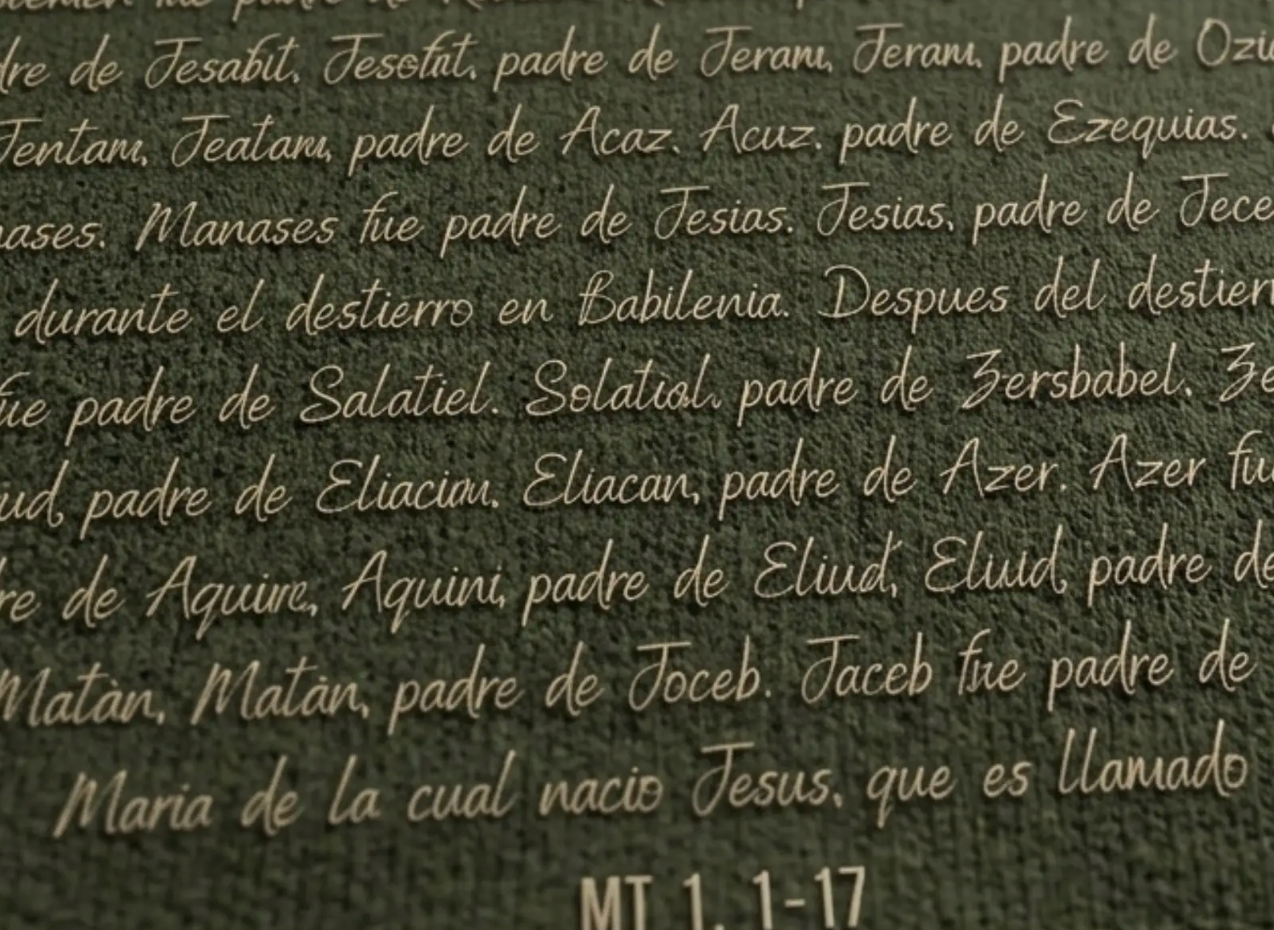 padre de
dre de Jesabit. Jesefnt. padre de Jeram, Jeram, padre de Ozi
Tentam, Jeatam, padre de Acaz. Acuz. padre de Ezequias.
nases. Manases fue padre de Jesias. Jesias, padre de Jece
durante el destierro en Babilenia. Despues del destier
fue padre de Salatiel. Solatial, padre de Zersbabel. Ze
ud, padre de Eliacim. Eliacan, padre de Azer. Azer fu
re de Aquire, Aquini, padre de Eliud, Eluid, padre de
Matàn, Matàn, padre de Joceb. Jaceb fue padre de
Maria de la cual nacio Jesus, que es llamado
MT 1, 1-17